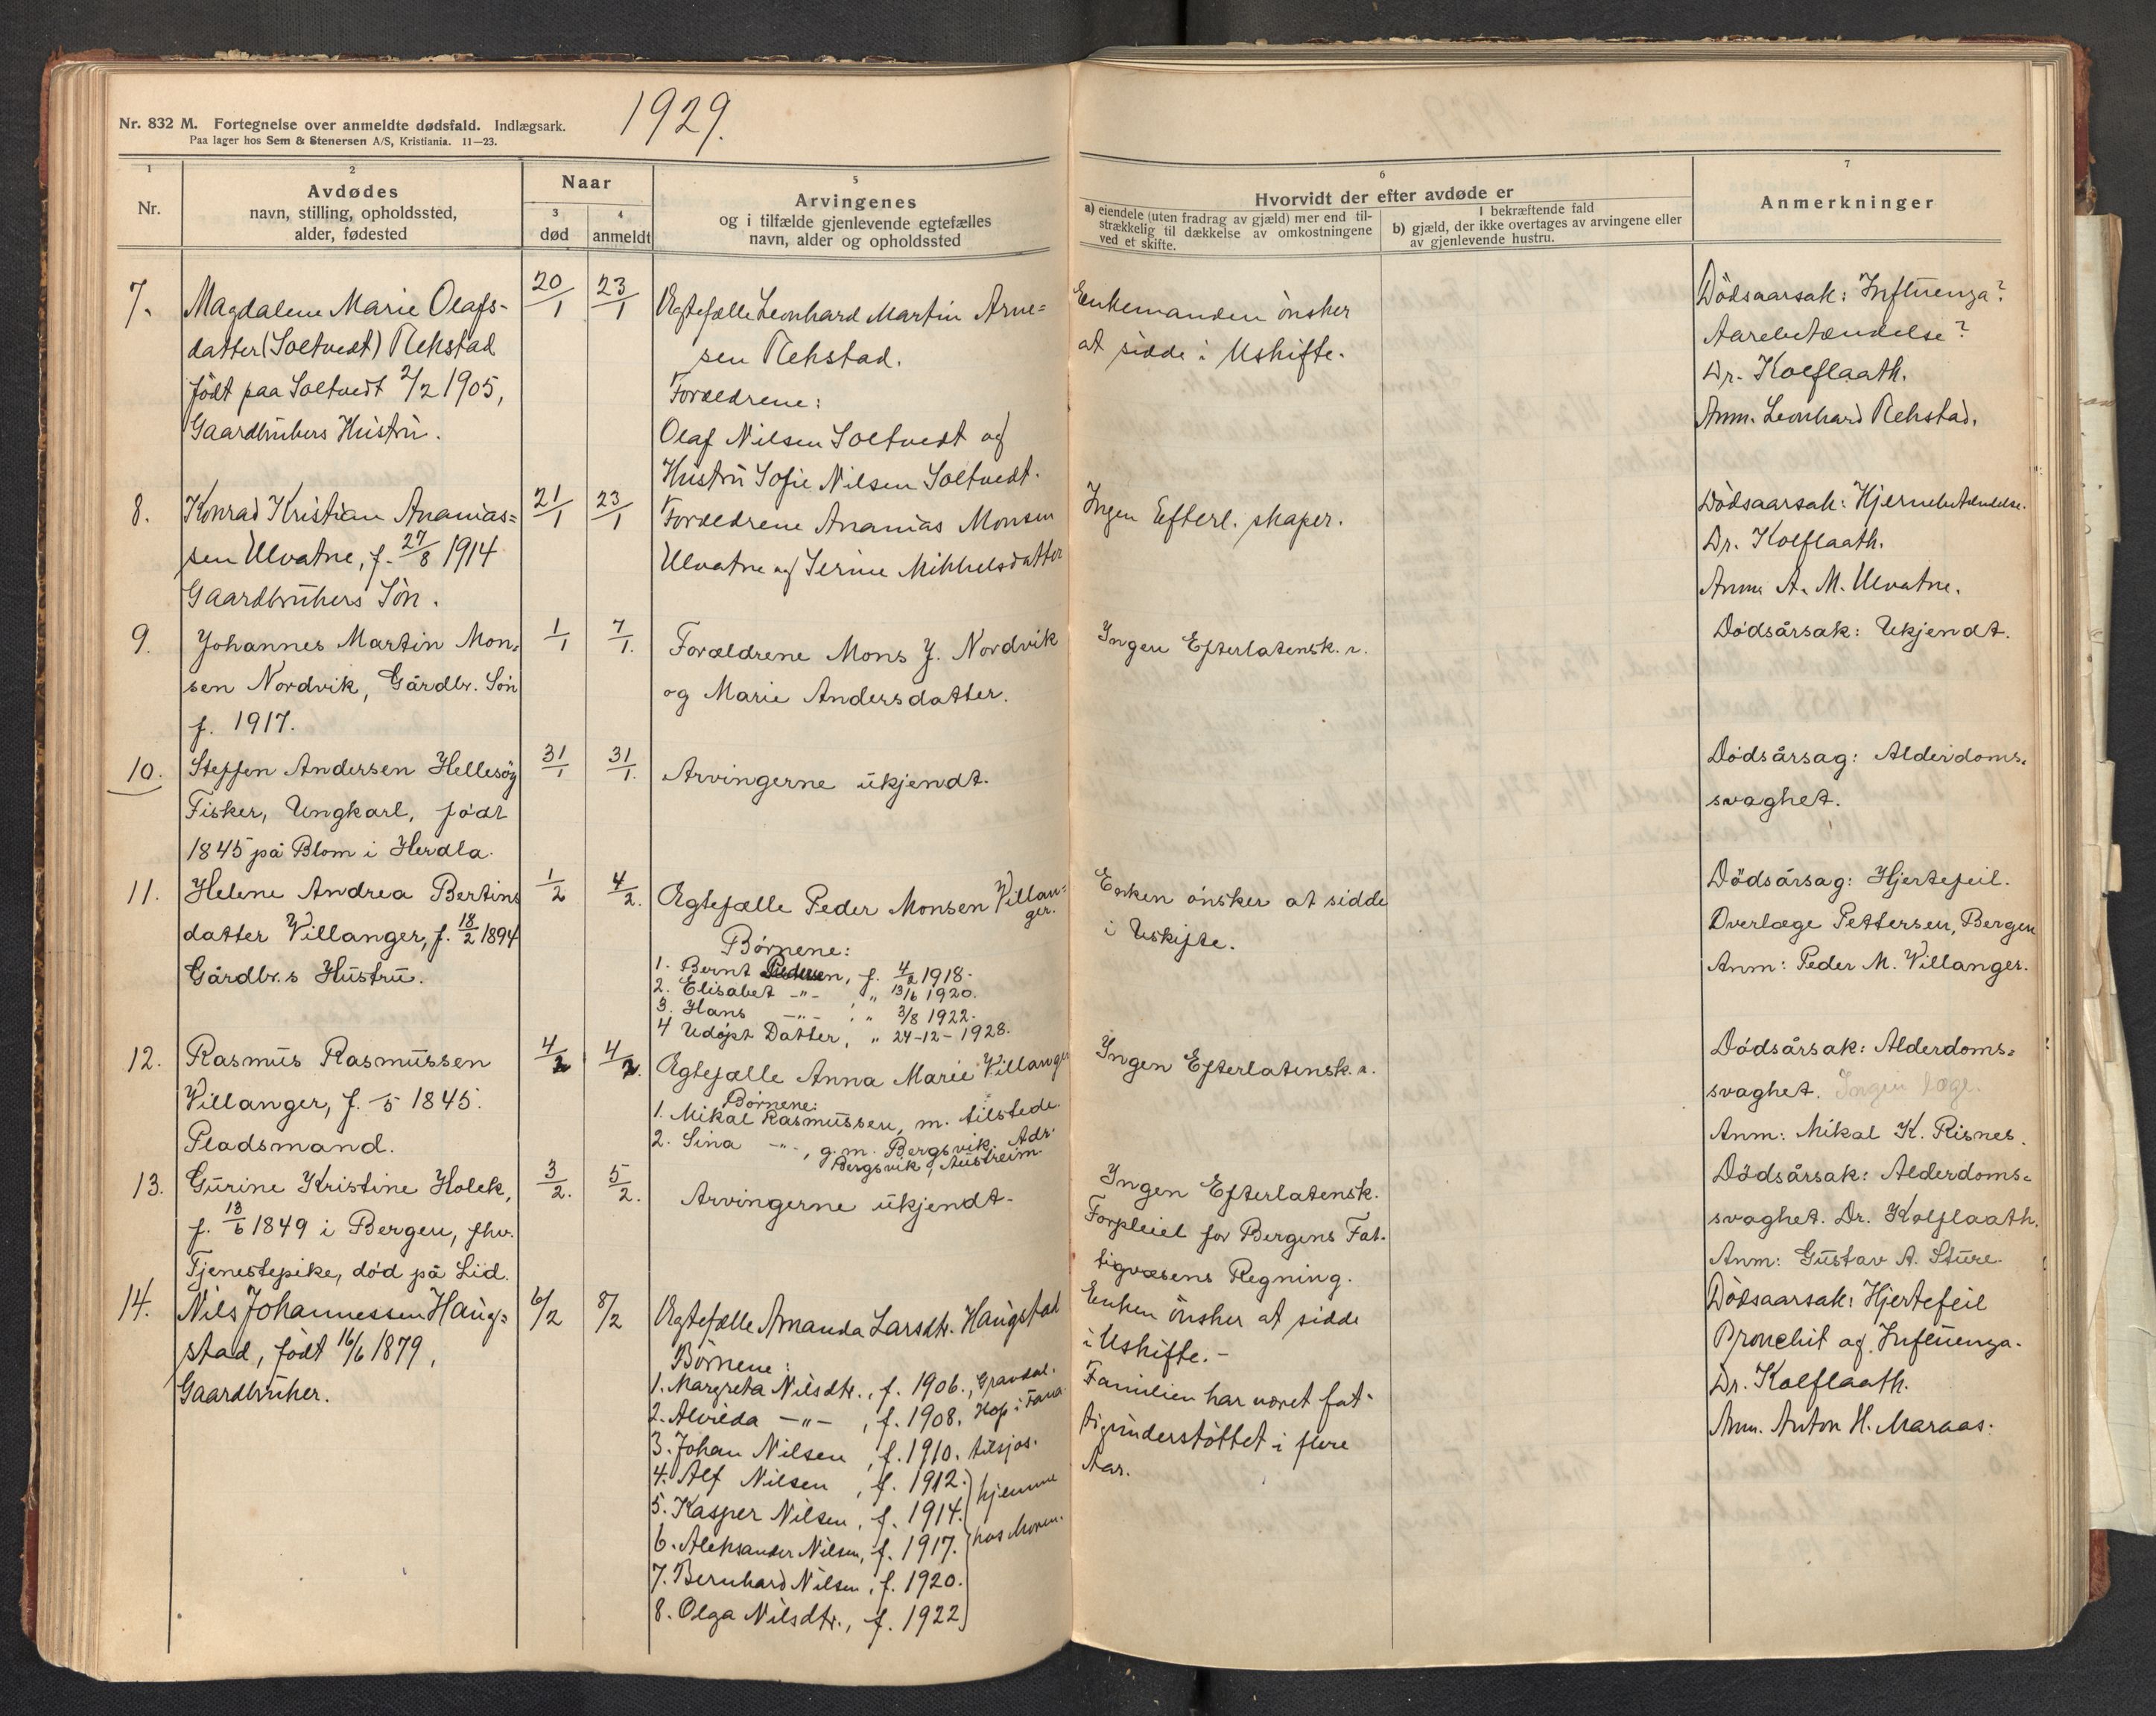 Nr. 832 M. Fortegnelse over anmeldte dødsfald. Indlægsark.
Paa lager hos Sem & Stenersen A/S, Kristiania. 11—23.
1929.
1
Nr.
2
Avdødes
navn, stilling, opholdssted,
alder, fødested
Naar
3
død
4
anmeldt
5
Arvingenes
og i tilfælde gjenlevende egtefælles
navn, alder og opholdssted
6
Hvorvidt der efter avdøde er
a) eiendele (uten fradrag av gjæld) mer end til-
strækkelig til dækkelse av omkostningene
ved et skifte.
I bekræftende fald
b) gjæld, der ikke overtages av arvingene eller
av gjenlevende hustru.
7
Anmerkninger
7.
Magdalene Marie Olafs-
datter (Soltvedt) Rekstad
födt paa Soltvedt 2/2 1905,
Gaardbrukers Hustru.
20/1
23/1
Egtefælle Leonhard Martin Arne=
sen Rekstad.
Forældrene:
Olaf Nilsen Soltvedt og
Hustru Sofie Nilsen Soltvedt.
Enkemanden önsker
at sidde i Uskifte.
Dödsaarsak: Influenza?
Aarebetændelse?
Dr. Kolflaath.
Anm. Leonhard Rekstad.
8.
Konrad Kristian Ananias=
sen Ulvatne, f. 27/8 1914
Gaardbrukers Sön.
21/1
23/1
Forældrene Ananias Monsen
Ulvatne og Serine Mikkelsdatter
Ingen Efterl. skaper.
Dödsaarsak: Hjernebetændelse.
Dr. Kolflaath.
Anm. A. M. Ulvatne.
9.
Johannes Martin Mon=
sen Nordvik, Gårdbr. Sön
f. 1917.
1/1
7/1.
Forældrene Mons J. Nordvik
og Marie Andersdatter.
Ingen Efterlatensk. r.
Dödsårsak: Ukjendt.
10.
Steffen Andersen Hellesöy
Fisker, Ungkarl, födt
1845 på Blom i Herdla.
31/1
31/1.
Arvingerne ukjendt.
Dödsårsag: Alderdoms=
svaghet.
11.
Helene Andrea Bertins
datter Villanger, f. 18/2 1894
Gårdbr.s Hustru.
1/2
4/2.
Egtefælle Peder Monsen Villan=
ger.
Börnene:
1. Bernt Pedersen, f. 4/2 1918.
2. Elisabet -"- " 13/6 1920.
3. Hans -"- " 3/8 1922.
4 Udöpt Datter, " 24-12-1928.
Enken önsker at sidde
i Uskifte.
Dödsårsag: Hjertefeil.
Overlæge Pettersen, Bergen
Anm: Peder M. Villanger.
12.
Rasmus Rasmussen
Villanger, f. /5 1845.
Pladsmand.
4/2
4/2.
Egtefælle Anna Marie Villanger
Börnene:
1. Mikal Rasmussen, m. tilstede.
2. Sina -"-, g.m. Bergsvik. Adr.
Bergsvik, Austreim.
Ingen Efterlatensk. r.
Dödsårsak: Alderdoms=
svaghet. Ingen læge.
Anm: Mikal K. Risnes.
13.
Gurine Kristine Holck,
f. 13/6 1849 i Bergen, fhv.
Tjenestepike, död på Lid.
3/2.
5/2.
Arvingerne ukjendt.
Ingen Efterlatensk.
Forpleiel for Bergens Fat-
tigvæsens Regning.
Dödsårsak: Alderdoms=
svaghet. Dr. Kolflaath.
Anm: Gustav A. Sture.
14.
Nils Johannessen Haug=
stad, födt 16/6 1879,
Gaardbruker.
6/2
8/2
Egtefælle Amanda Larsdtr. Haugstad
Börnene:
1. Margreta Nilsdtr., f. 1906., Gravdal.
2. Alvilda -"-, f. 1908. Hop i Fana
3. Johan Nilsen, f. 1910. tilsjös.
4. Alf Nilsen, f. 1912. hjemme
5. Kasper Nilsen, f. 1914.
6. Aleksander Nilsen, f. 1917. hos Moren.
7. Bernhard Nilsen, f. 1920.
8. Olga Nilsdtr., f. 1922
Enken önsker at sidde
i Uskifte.-
Familien har været fat-
tigunderstöttet i flere
Aar.
Dödsaarsak: Hjertefeil
Bronchit og Influenza.
Dr. Kolflaath.
Anm. Anton H. Maraas.